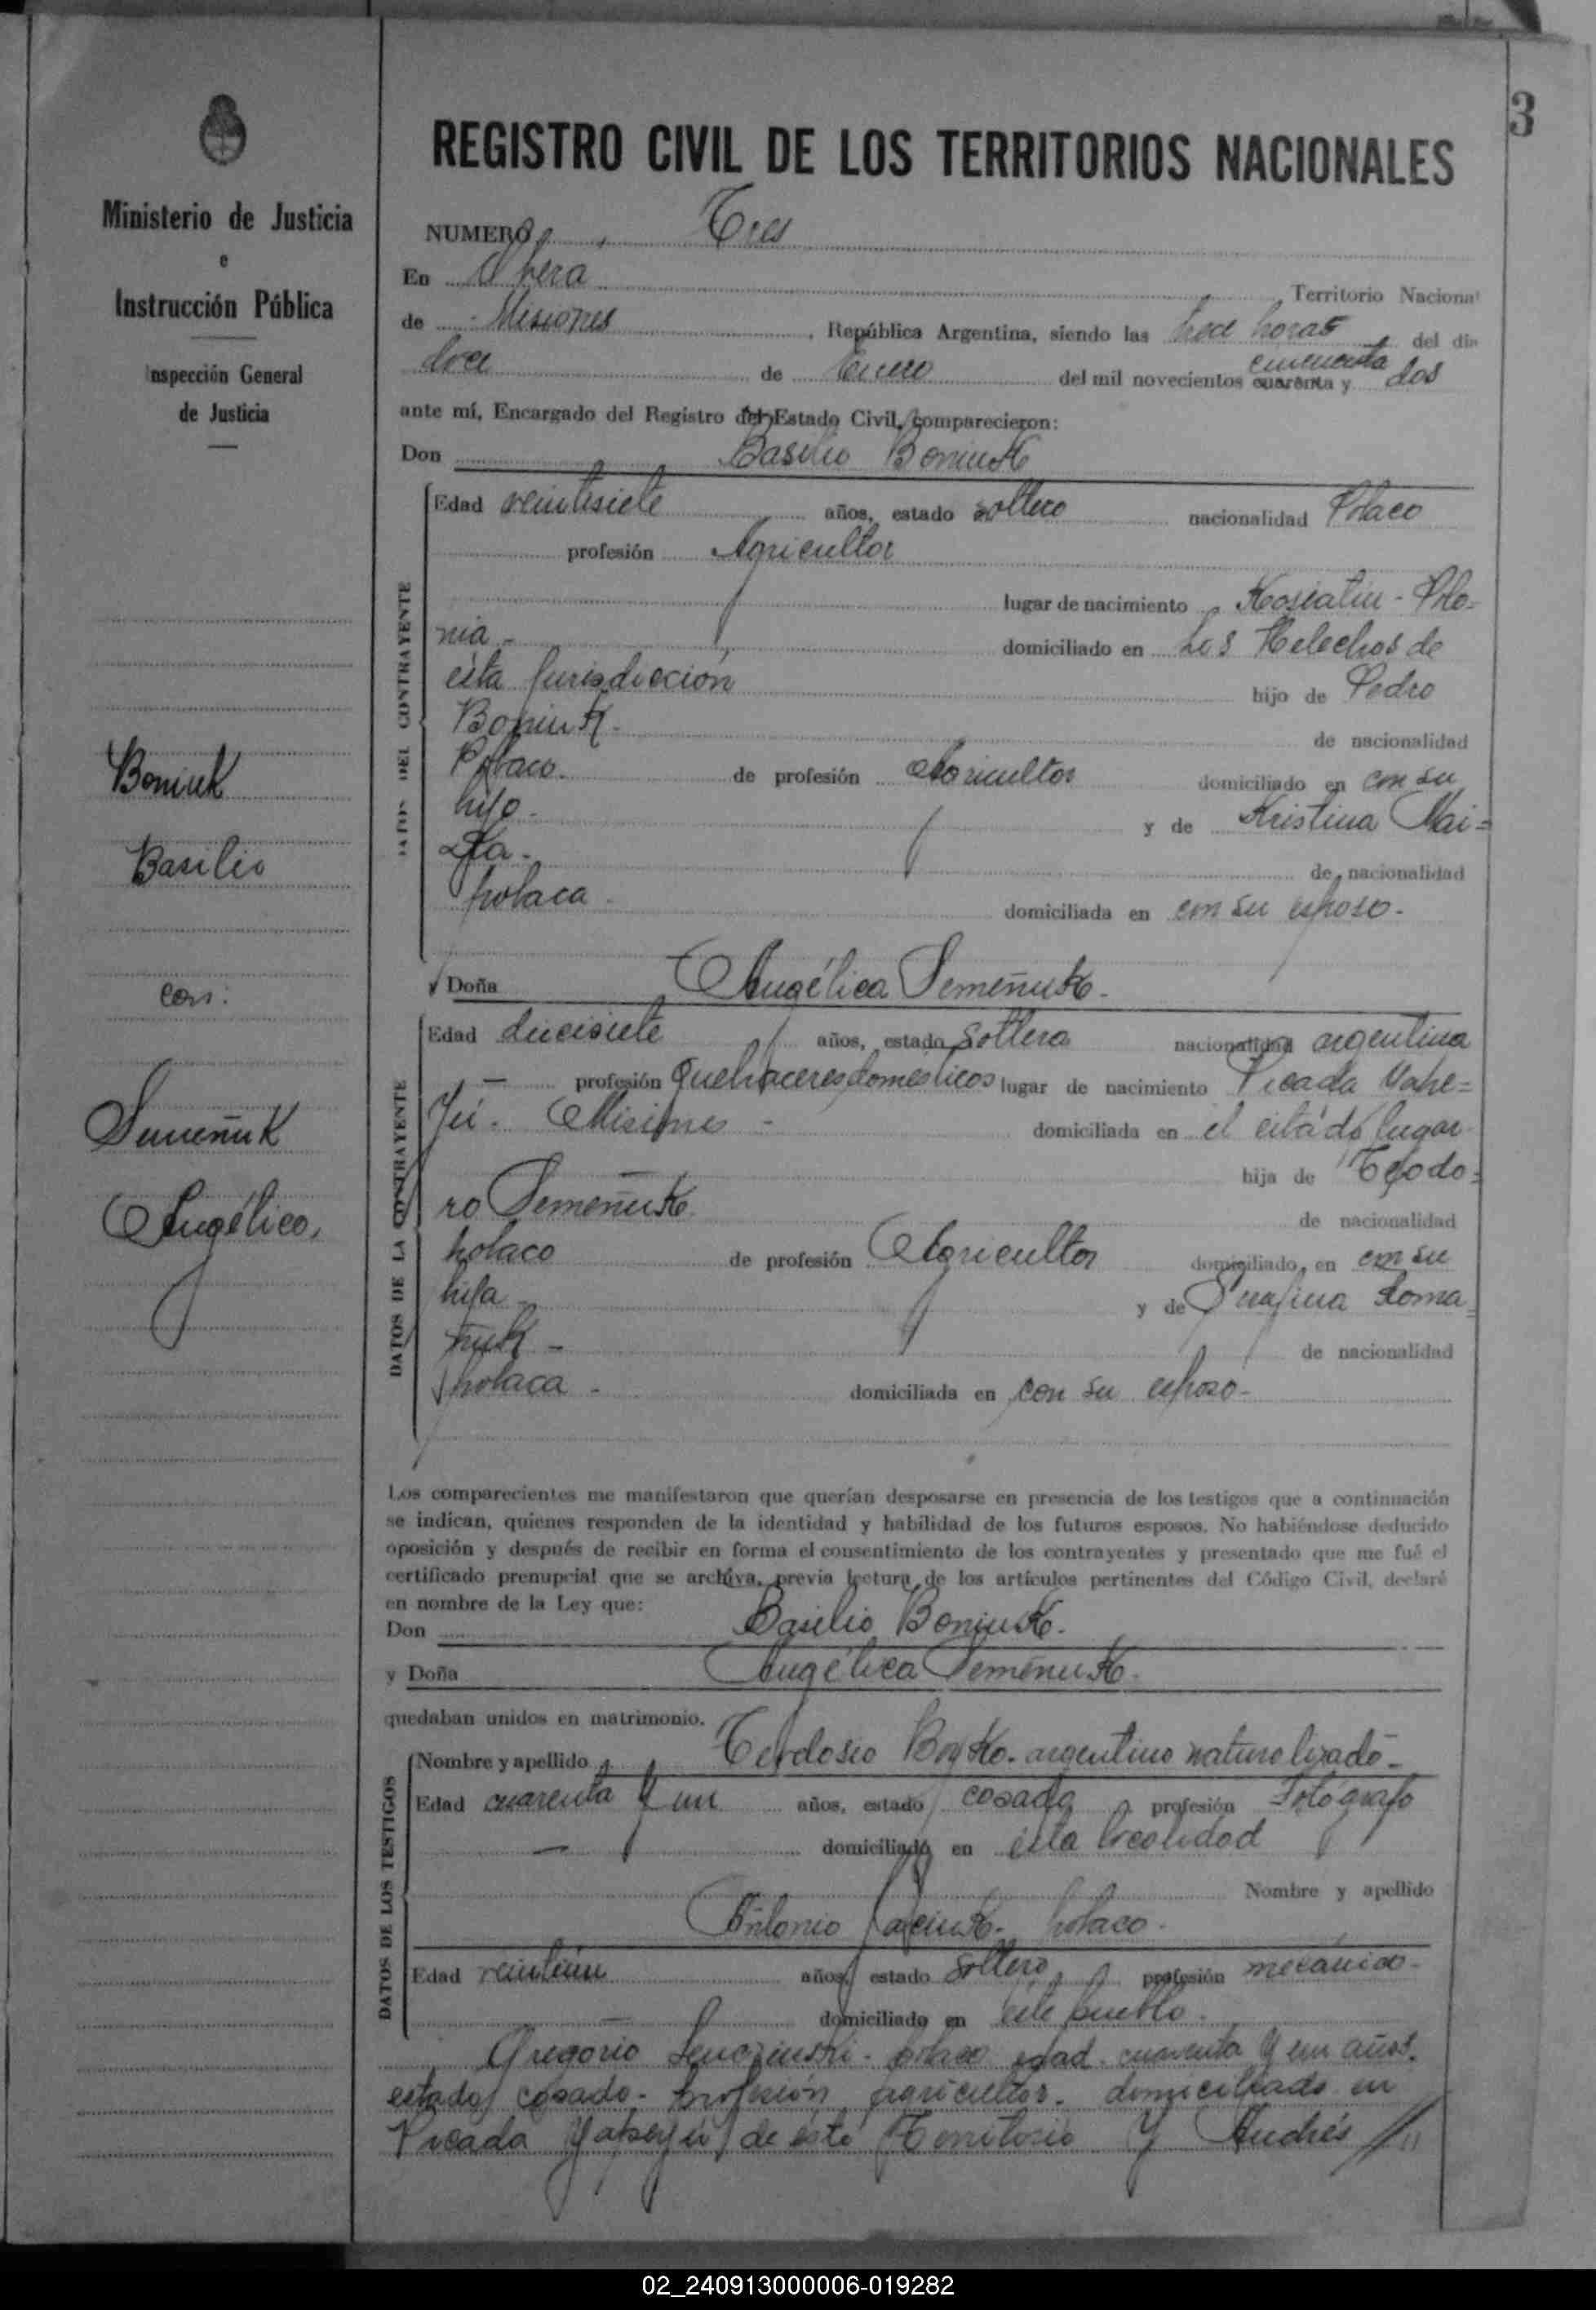 3
REGISTRO CIVIL DE LOS TERRITORIOS NACIONALES
Ministerio de Justicia
e
Instrucción Pública
Inspección General
de Justicia
Boniuk
Basilio
con:
Semeñuk
Angélica,
NUMERO Tres
En Oberá Territorio Nacional
de Misiones, República Argentina, siendo las trece horas del día
doce de Enero del mil novecientos cuarenta y cincuenta dos
ante mí, Encargado del Registro del Estado Civil, comparecieron:
Don Basilio Boniuk
DATOS DEL CONTRAYENTE
Edad veintisiete años, estado soltero nacionalidad Polaco
profesión Agricultor
lugar de nacimiento Kosiatin - Polo=
nia - domiciliado en Los Helechos de
ésta Jurisdicción hijo de Pedro
Boniuk. de nacionalidad
Polaco. de profesión Agricultor domiciliado en con su
hijo - y de Kristina Mai=
de nacionalidad
polaca - domiciliada en con su esposo.-
y Doña Angélica Semeñuk.
DATOS DE LA CONTRAYENTE
Edad diecisiete años, estado soltera nacionalidad argentina
— profesión Quehaceres domésticos lugar de nacimiento Picada Yape=
yú. Misiones - domiciliada en el citado lugar
hija de Teodo=
ro Semeñuk de nacionalidad
polaco de profesión Agricultor domiciliado en con su
hija - y de Roma=
ñuk - de nacionalidad
polaca - domiciliada en con su esposo-
Los comparecientes me manifestaron que querían desposarse en presencia de los testigos que a continuación
se indican, quienes responden de la identidad y habilidad de los futuros esposos. No habiéndose deducido
oposición y después de recibir en forma el consentimiento de los contrayentes y presentado que me fué el
certificado prenupcial que se archiva, previa lectura de los artículos pertinentes del Código Civil, declaré
en nombre de la Ley que:
Don Basilio Boniuk.
y Doña Angélica Semeñuk.
quedaban unidos en matrimonio.
DATOS DE LOS TESTIGOS
Nombre y apellido Teodosio Boyko. argentino naturalizado-
Edad cuarenta y un años, estado casado profesión Fotógrafo
— domiciliado en ésta localidad
Nombre y apellido
Antonio polaco.
Edad veintiún años, estado soltero profesión mecánico.
— domiciliado en éste pueblo.
Gregorio polaco edad cuarenta y un años.
estado casado. profesión agricultor. domiciliado en
Picada Yapeyú de éste Territorio y Andrés //
02_240913000006-019282